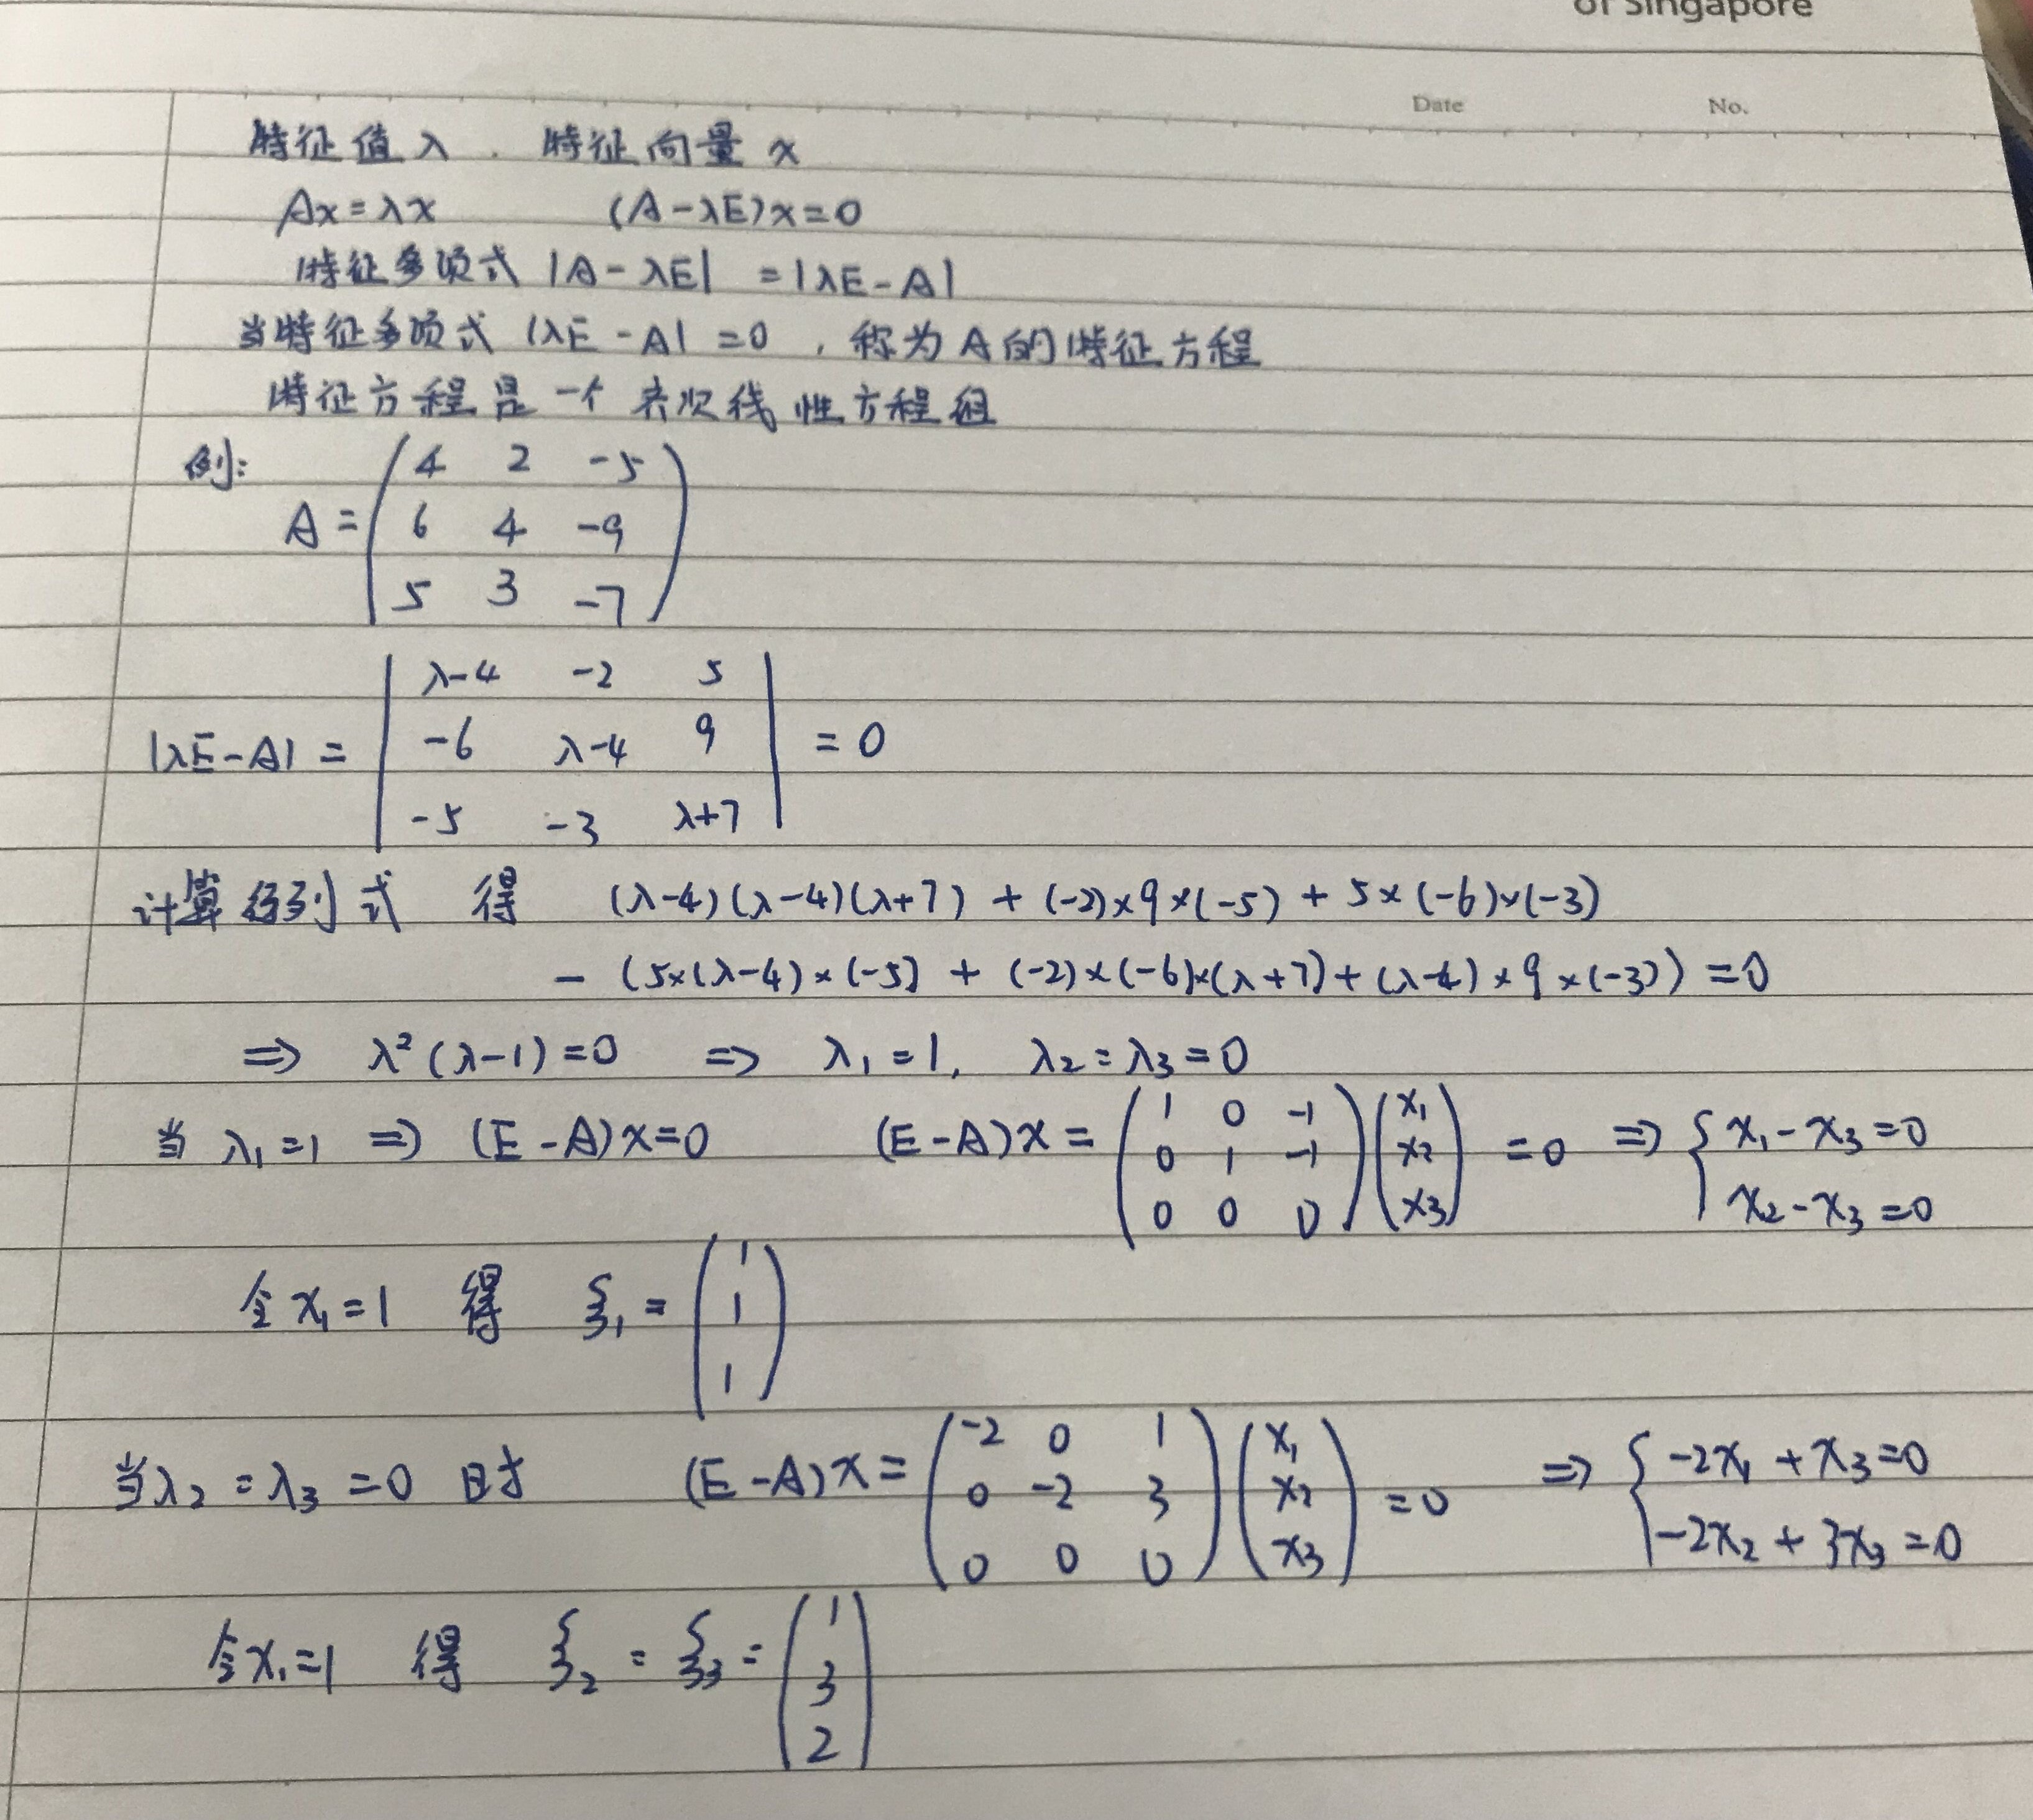 of Singapore
Date No.
特征值λ. 特征向量 x
Ax=λx (A-λE)x=0
特征多项式 |A-λE| =|λE-A|
当特征多项式 |λE-A| =0 , 称为A的特征方程
特征方程是一个齐次线性方程组
例:
A = ( 4 2 -5
6 4 -9
5 3 -7 )
|λE-A| = | λ-4 -2 5
-6 λ-4 9
-5 -3 λ+7 | = 0
计算行列式 得 (λ-4)(λ-4)(λ+7) + (-2)×9×(-5) + 5×(-6)×(-3)
- (5×(λ-4)×(-5) + (-2)×(-6)×(λ+7)+(λ-4)×9×(-3)) =0
⇒ λ²(λ-1)=0 ⇒ λ₁=1, λ₂=λ₃=0
当 λ₁=1 ⇒ (E-A)x=0 (E-A)x = ( 1 0 -1
0 1 -1
0 0 0 ) ( x₁
x₂
x₃ ) =0 ⇒ { x₁-x₃=0
x₂-x₃=0
令x₁=1 得 ξ₁ = ( 1
1
1 )
当λ₂=λ₃=0 时 (E-A)x = ( -2 0 1
0 -2 3
0 0 0 ) ( x₁
x₂
x₃ ) =0 ⇒ { -2x₁+x₃=0
-2x₂+3x₃=0
令x₁=1 得 ξ₂ = ξ₃ = ( 1
3
2 )